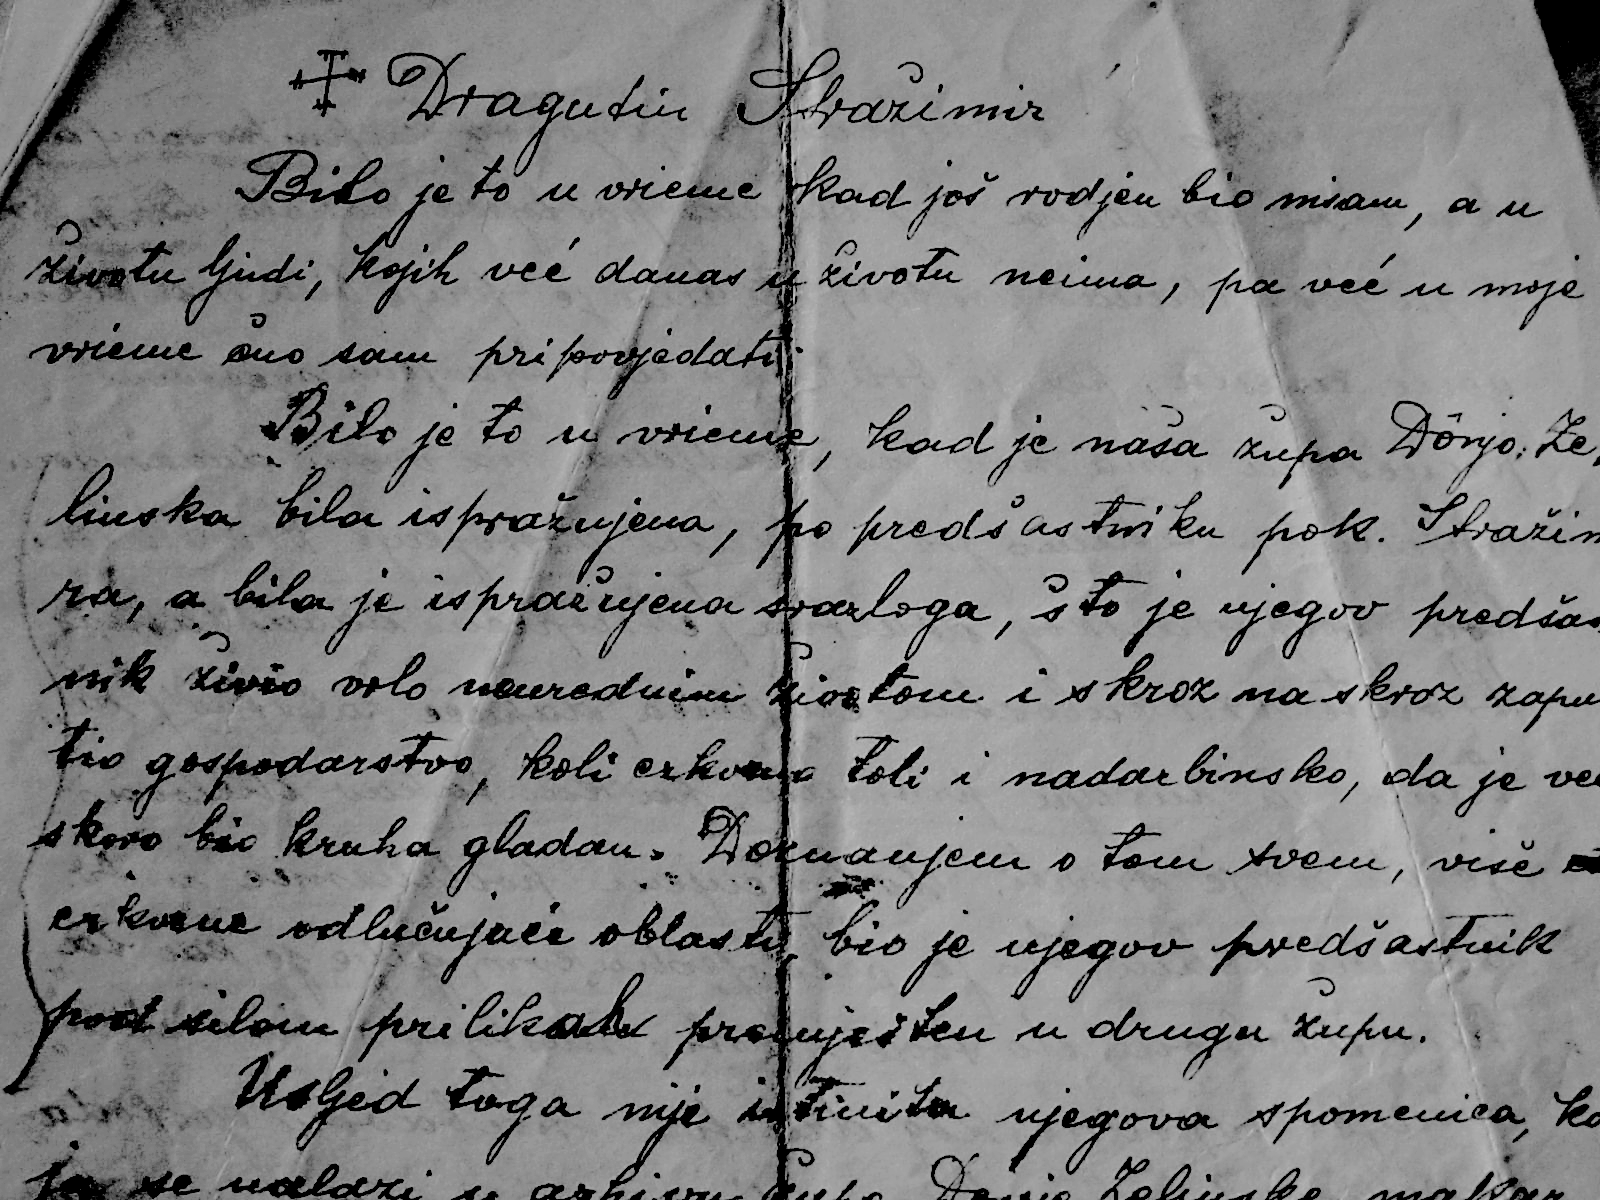 Dragutin Stražimir
Bilo je to u vrieme kad još rodjen bio nisam, a u
životu ljudi, kojih već danas u životu neima, pa već u moje
vrieme čuo sam pripovjedati.
Bilo je to u vrieme, kad je naša župa Dônjo. Ze,
linska bila ispražnjena, po predšastniku pok. Stražim
ra, a bila je ispražnjena srazloga, što je njegov predšas
nik živio vrlo neurednim životom i skroz na skroz zapu
tio gospodarstvo, koli crkveno toli i nadarbinsko, da je već
skoro bio kruha gladan. Doznanjem o tom svem, više
crkvene odlučujuće oblasti, bio je njegov predšastnik
pod silom prilikah premješten u drugu župu.
Usljed toga nije istinita njegova spomenica, ko
ja se nalazi u arhivu župe Donjo Zelinske, makar